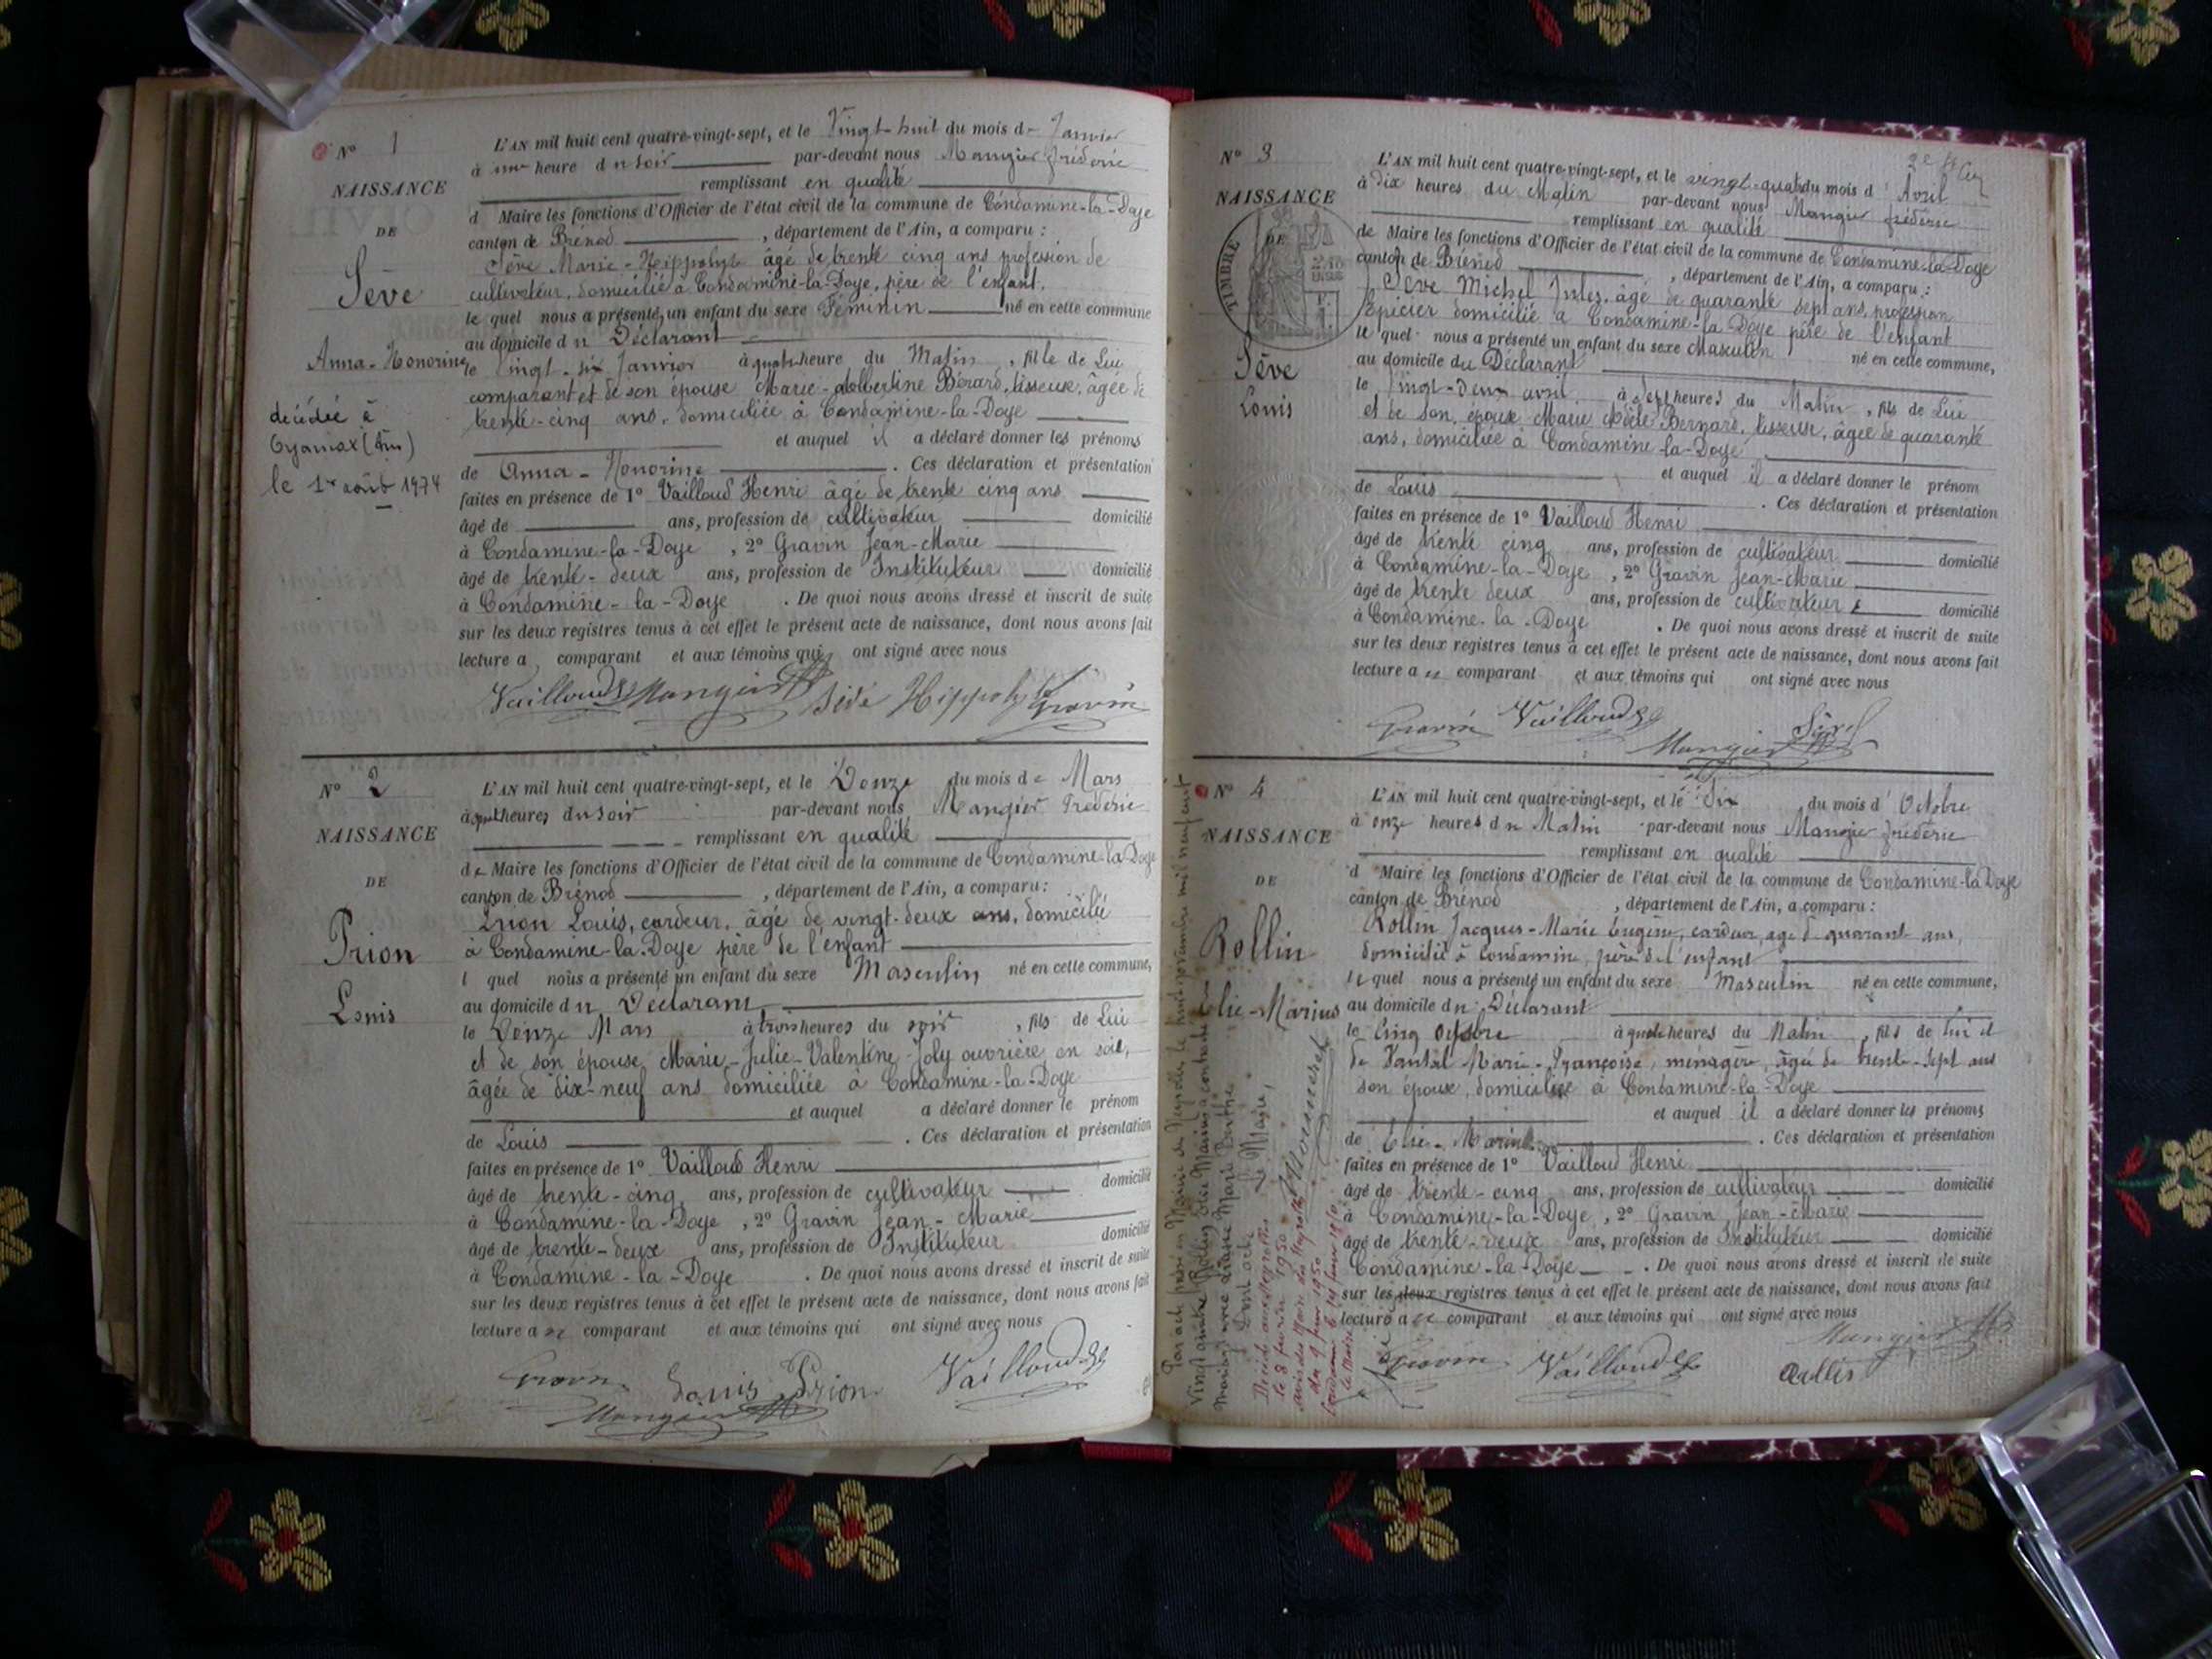 N° 1
NAISSANCE
DE
Sève
Anna-Honorine
décédée à
Oyonnax (Ain)
le 1er août 1974
L'AN mil huit cent quatre-vingt-sept, et le Vingt-huit du mois de Janvier
à une heure du soir par-devant nous Mangier Frédéric
remplissant en qualité
d Maire les fonctions d'Officier de l'état civil de la commune de Condamine-la-Doye
canton de Brénod, département de l'Ain, a comparu :
Sève Marie-Hippolyte âgé de trente cinq ans profession de
cultivateur, domicilié à Condamine-la-Doye, père de l'enfant.
le quel nous a présenté un enfant du sexe Féminin né en cette commune
au domicile du Déclarant
le Vingt-six Janvier à quatre heure du Matin, fille de Lui
comparant et de son épouse Marie-Albertine Bérard, tisseuse, âgée de
trente-cinq ans, domiciliée à Condamine-la-Doye
et auquel il a déclaré donner les prénoms
de Anna-Honorine. Ces déclaration et présentation
faites en présence de 1° Vailloud Henri âgé de trente cinq ans
âgé de ans, profession de cultivateur domicilié
à Condamine-la-Doye, 2° Gravin Jean-Marie
âgé de trente-deux ans, profession de Instituteur domicilié
à Condamine-la-Doye. De quoi nous avons dressé et inscrit de suite
sur les deux registres tenus à cet effet le présent acte de naissance, dont nous avons fait
lecture a comparant et aux témoins qui ont signé avec nous
Vailloud Mangier Sève Hippolyte Gravin
N° 2
NAISSANCE
DE
Prion
Louis
L'AN mil huit cent quatre-vingt-sept, et le Douze du mois de Mars
à quatre heures du soir par-devant nous Mangier Frédéric
remplissant en qualité
de Maire les fonctions d'Officier de l'état civil de la commune de Condamine-la-Doye
canton de Brénod, département de l'Ain, a comparu :
Prion Louis, cardeur, âgé de vingt-deux ans, domicilié
à Condamine-la-Doye père de l'enfant
l quel nous a présenté un enfant du sexe Masculin né en cette commune,
au domicile du Déclarant
le Douze Mars à trois heures du soir, fils de Lui
et de son épouse Marie-Julie-Valentine Joly ouvrière en soie,
âgée de dix-neuf ans domiciliée à Condamine-la-Doye
et auquel a déclaré donner le prénom
de Louis. Ces déclaration et présentation
faites en présence de 1° Vailloud Henri
âgé de trente-cinq ans, profession de cultivateur domicilié
à Condamine-la-Doye, 2° Gravin Jean-Marie
âgé de trente-deux ans, profession de Instituteur domicilié
à Condamine-la-Doye. De quoi nous avons dressé et inscrit de suite
sur les deux registres tenus à cet effet le présent acte de naissance, dont nous avons fait
lecture a comparant et aux témoins qui ont signé avec nous
Gravin Louis Prion Vailloud
Mangier
N° 3
NAISSANCE
DE
TIMBRE
Sève
Louis
L'AN mil huit cent quatre-vingt-sept, et le vingt-quatre du mois d'Avril
à dix heures du Matin par-devant nous Mangier Frédéric
remplissant en qualité
de Maire les fonctions d'Officier de l'état civil de la commune de Condamine-la-Doye
canton de Brénod, département de l'Ain, a comparu :
Sève Michel Jules, âgé de quarante sept ans, profession
Epicier domicilié à Condamine-la Doye père de l'enfant
le quel nous a présenté un enfant du sexe Masculin né en cette commune,
au domicile du Déclarant
le Vingt-deux avril à sept heures du Matin, fils de Lui
et de son épouse Marie Adèle Bernard, tisseuse, âgée de quarante
ans, domiciliée à Condamine-la-Doye
et auquel il a déclaré donner le prénom
de Louis. Ces déclaration et présentation
faites en présence de 1° Vailloud Henri
âgé de trente cinq ans, profession de cultivateur domicilié
à Condamine-la-Doye, 2° Gravin Jean-Marie
âgé de trente deux ans, profession de cultivateur domicilié
à Condamine-la-Doye. De quoi nous avons dressé et inscrit de suite
sur les deux registres tenus à cet effet le présent acte de naissance, dont nous avons fait
lecture a comparant et aux témoins qui ont signé avec nous
Gravin Vailloud Sève
Mangier
N° 4
NAISSANCE
DE
Rollin
Elie-Marius
L'AN mil huit cent quatre-vingt-sept, et le Six du mois d'Octobre
à onze heures du Matin par-devant nous Mangier Frédéric
remplissant en qualité
d Maire les fonctions d'Officier de l'état civil de la commune de Condamine-la Doye
canton de Brénod, département de l'Ain, a comparu :
Rollin Jacques-Marie Eugène, cardeur, âgé d quarante ans,
domicilié à Condamine, père de l'enfant
le quel nous a présenté un enfant du sexe Masculin né en cette commune,
au domicile du Déclarant
le Cinq Octobre à quatre heures du Matin, fils de lui et
de Marie-Françoise, ménagère, âgée de trente-sept ans
son épouse, domiciliée à Condamine-la-Doye
et auquel il a déclaré donner les prénoms
de Elie-Marius. Ces déclaration et présentation
faites en présence de 1° Vailloud Henri
âgé de trente-cinq ans, profession de cultivateur domicilié
à Condamine-la-Doye, 2° Gravin Jean-Marie
âgé de trente-deux ans, profession de Instituteur domicilié
Condamine-la-Doye. De quoi nous avons dressé et inscrit de suite
sur les deux registres tenus à cet effet le présent acte de naissance, dont nous avons fait
lecture a comparant et aux témoins qui ont signé avec nous
Gravin Vailloud Mangier
Rollin
Dont acte
Le Maire,
le 8 février 1950